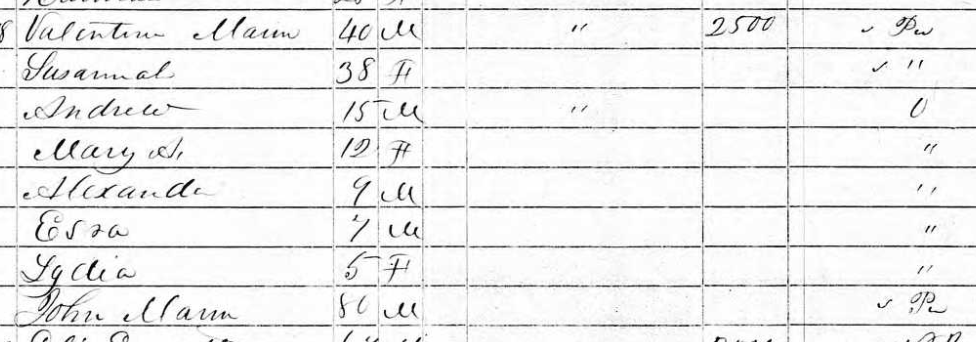 8 Valentine Mann 40 M " 2500 Pa
Susannah 38 F "
Andrew 15 M " O
Mary A. 12 F "
Alexander 9 M "
Esra 7 M "
Lydia 5 F "
John Mann 80 M Pa